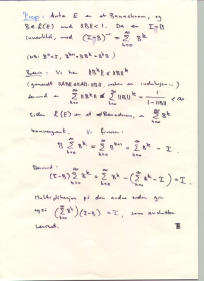 Prop: Anta E er et Banachrom, og
B ∈ L(E) med ||B|| < 1. Da er I-B
invertibel, med (I-B)⁻¹ = ∑_{k=0}^∞ B^k
(NB: B⁰ = I, B^{k+1} = B B^k = B^k B)
Bevis: Vi har ||B^k|| ≤ ||B||^k
(generelt ||AB|| ≤ ||A||·||B||, resten er induksjon.)
Dermed ∑_{k=0}^∞ ||B^k|| ≤ ∑_{k=0}^∞ ||B||^k = 1/(1-||B||) < ∞
Siden L(E) er et Banachrom, er ∑_{k=0}^∞ B^k
konvergent. Vi finner:
B ∑_{k=0}^∞ B^k = ∑_{k=0}^∞ B^{k+1} = ∑_{k=0}^∞ B^k - I
Dermed:
(I-B) ∑_{k=0}^∞ B^k = ∑_{k=0}^∞ B^k - (∑_{k=0}^∞ B^k - I) = I.
Multiplikasjon på den andre siden gir
også (∑_{k=0}^∞ B^k)(I-B) = I, som avslutter
beviset.